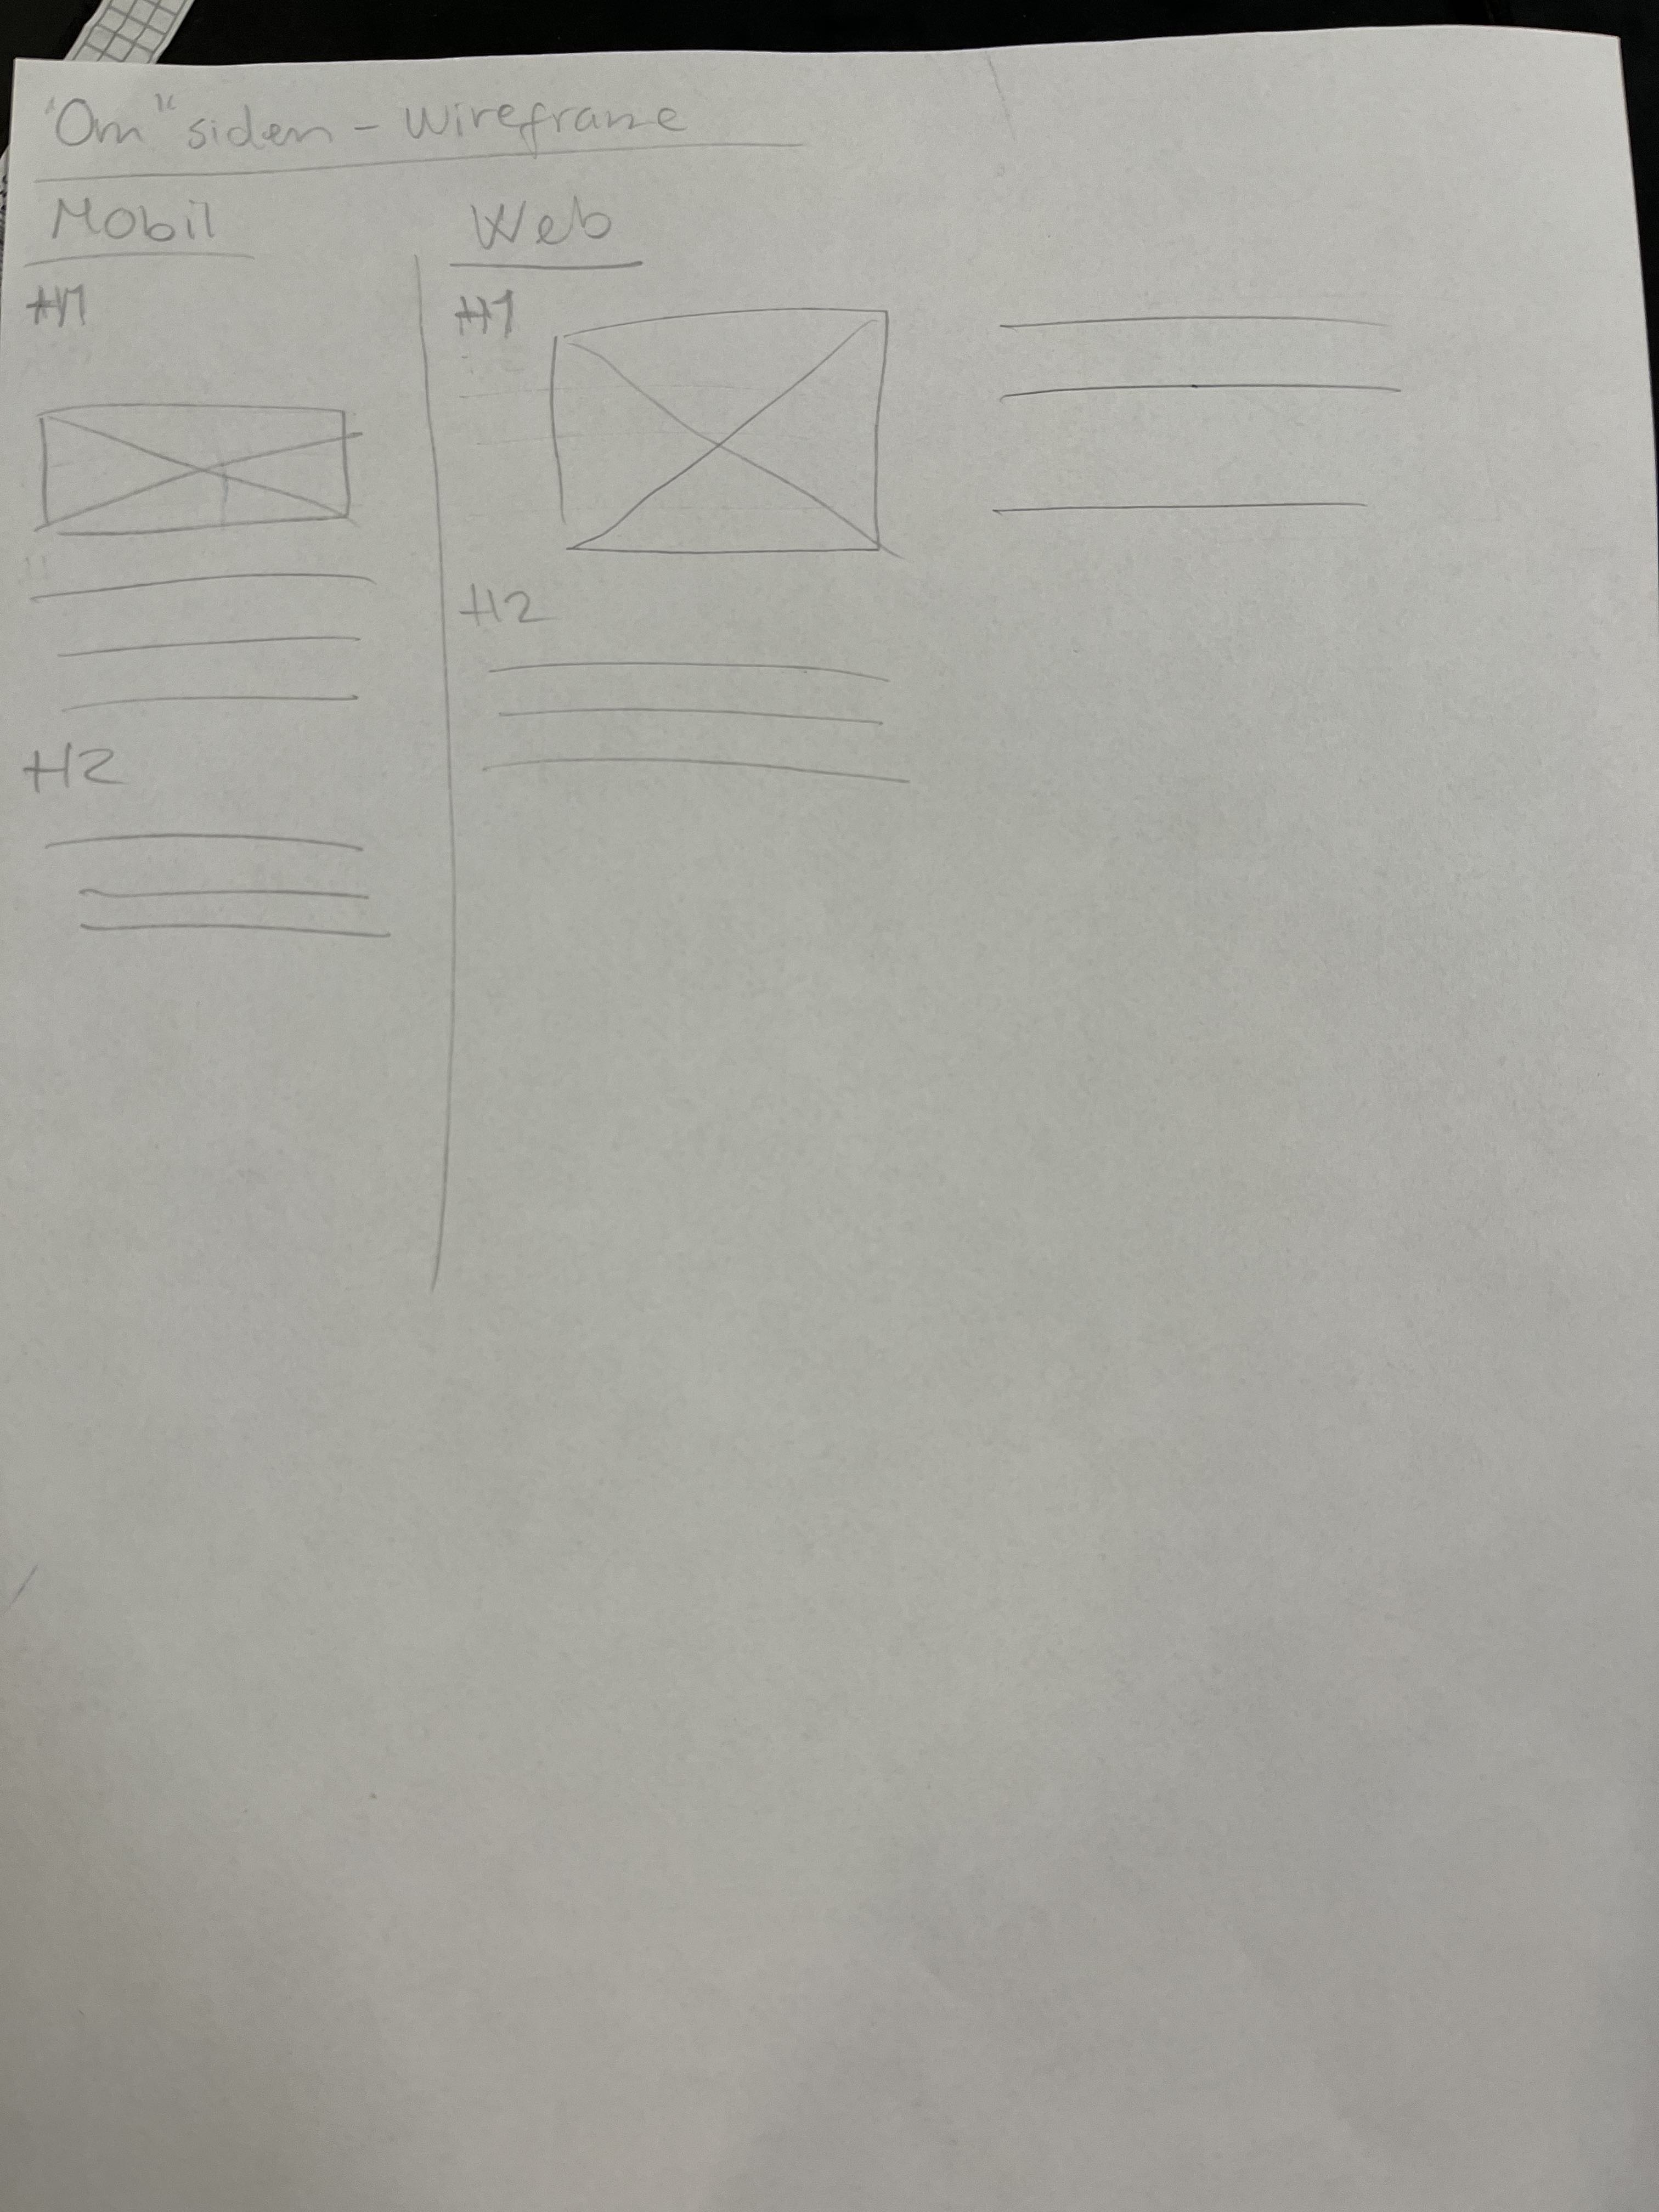 "Om" siden - Wireframe
Mobil
H1
H2
Web
H1
H2